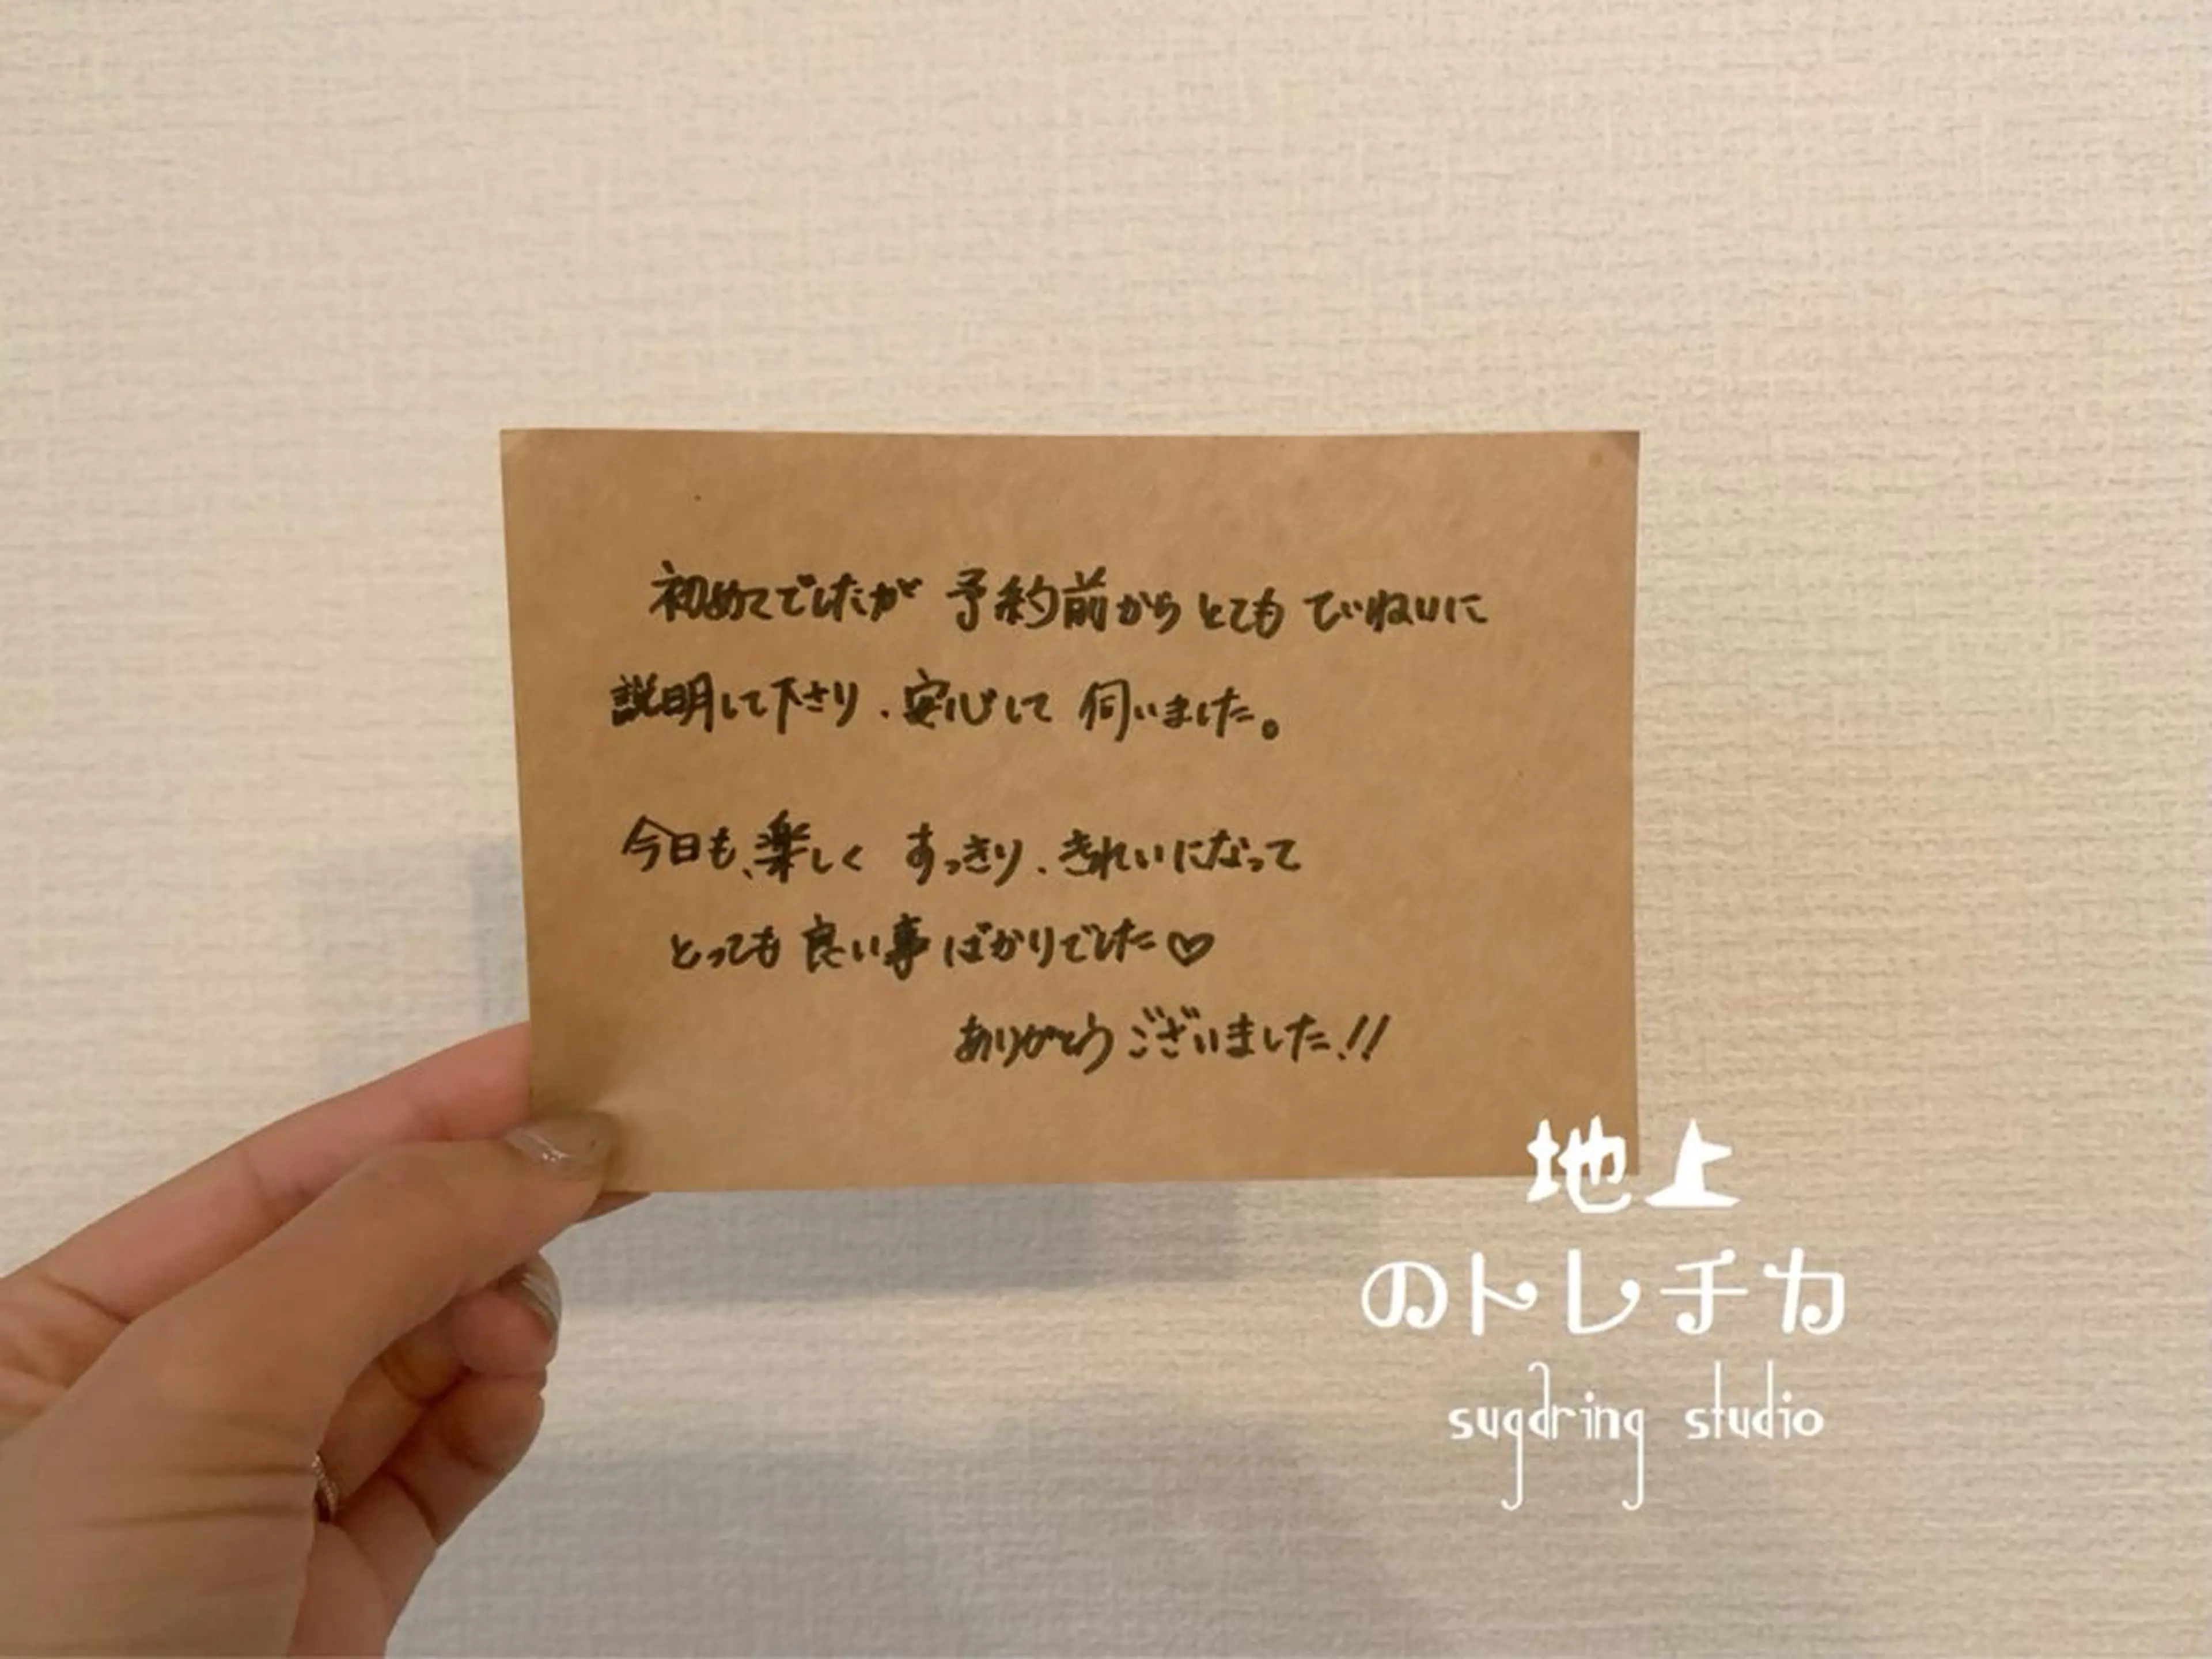 初めてでしたが 予約前からとても ていねいに
説明して下さり、安心して 伺いました。
今日も、楽しく すっきり、きれいになって
とっても 良い事 ばかりでした♡
ありがとう ございました!!
地上
のトレチカ
sugaring studio